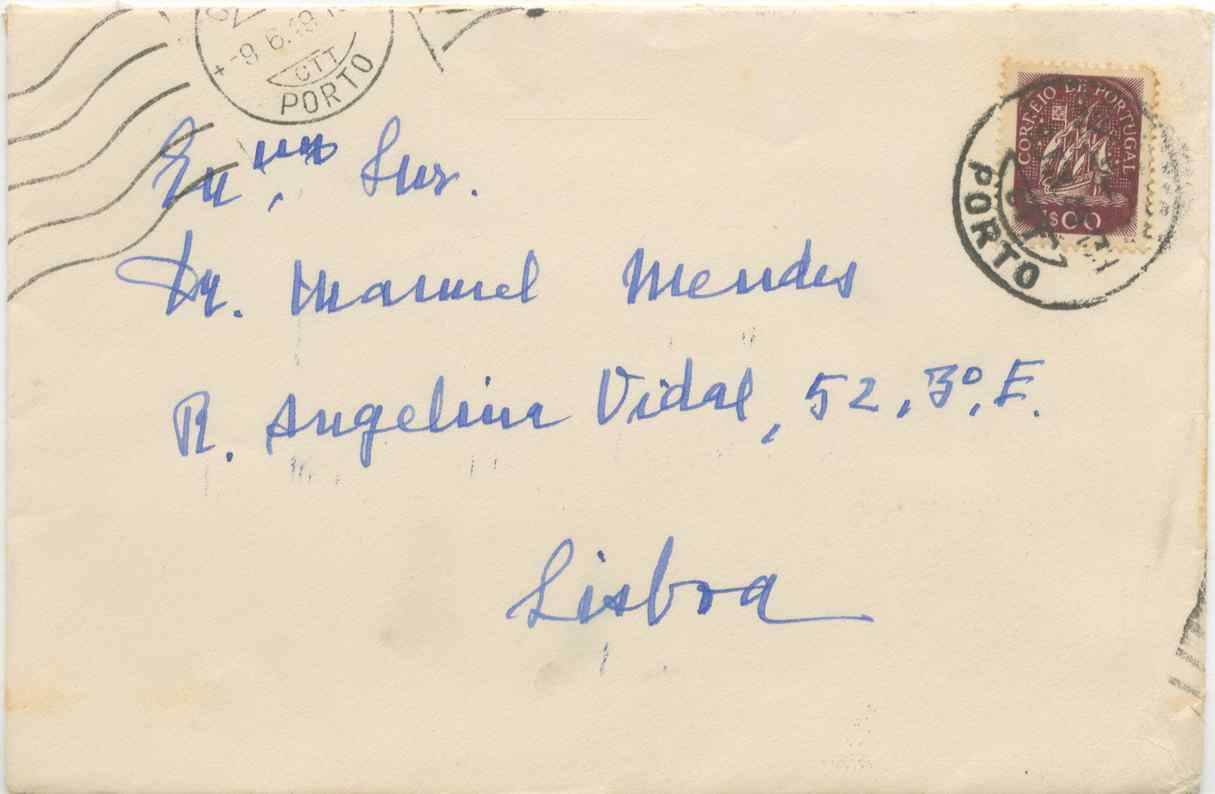 -9.6.19
CTT
PORTO
CORREIO DE PORTUGAL
1$00
PORTO
Ex.mo Snr.
Dr. Manuel Mendes
R. Angelina Vidal, 52, 3º, E.
Lisboa